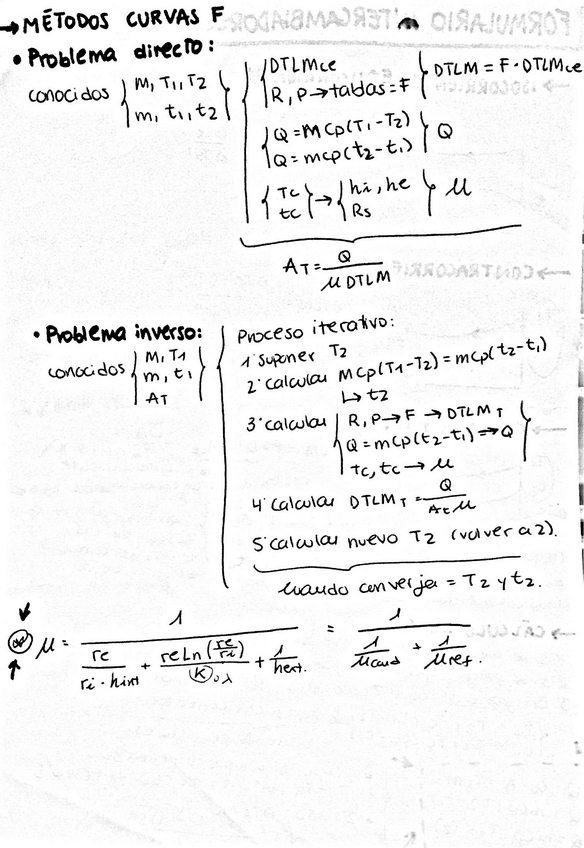 →MÉTODOS CURVAS F
• Problema directo:
conocidos { M, T1, T2
m, t1, t2 }
{ DTLMce
R, P → tablas = F } DTLM = F · DTLMce
{ Q = MCp(T1-T2)
Q = mcp(t2-t1) } Q
{ Tc
tc } → { hi, he
Rs } μ
AT = Q / μ DTLM
• Problema inverso:
conocidos { M, T1
m, t1
AT }
Proceso iterativo:
1· suponer T2
2· calcular MCp(T1-T2) = mcp(t2-t1)
↳ t2
3· calcular { R, P → F → DTLMT
Q = mcp(t2-t1) ⇒ Q
Tc, tc → μ }
4· calcular DTLMT = Q / At μ
5· calcular nuevo T2 (volver a 2).
cuando converja = T2 y t2.
μ = 1 / (re / ri · hint + re Ln (re/ri) / K o λ + 1 / hext.) = 1 / (1 / μcond + 1 / μref.)